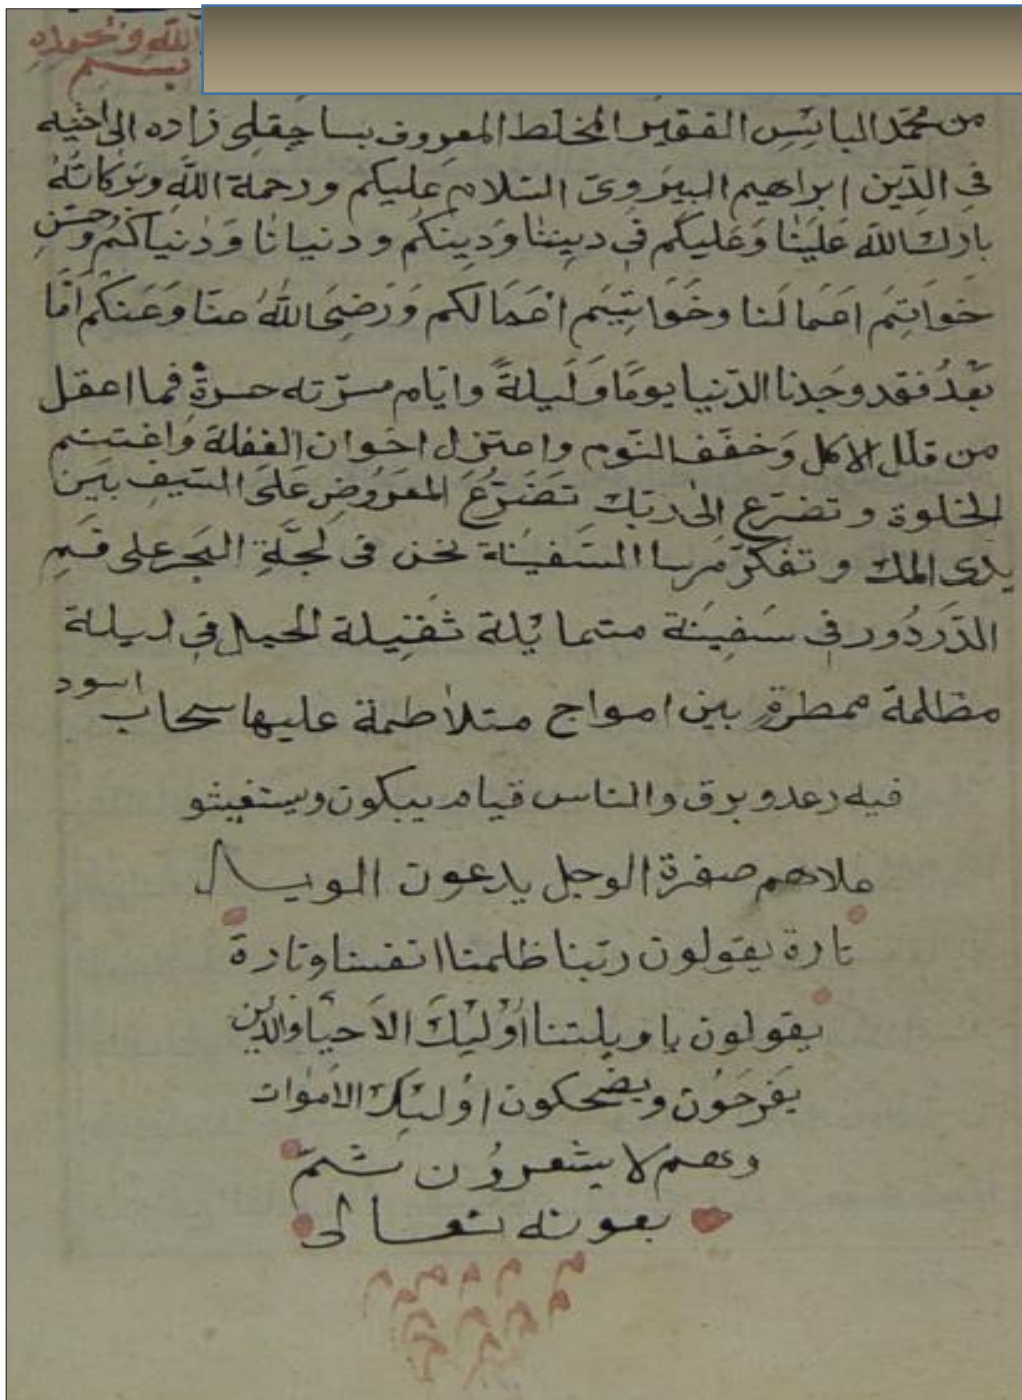 الله وبحوله
بسم
من محمد البائس الفقير المخلط المعروف بساچقلى زاده الى اخيه
في الدين ابراهيم البيروى السلام عليكم ورحمة الله وبركاته
بارك الله علينا وعليكم في ديننا ودينكم ودنيانا ودنياكم وحسن
خواتم اعمالنا وخواتيم اعمالكم ورضى الله عنا وعنكم اما
بعد فقد وجدنا الدنيا يوما وليلة وايام مسرته حسرة فما اعقل
من قلل الاكل وخفف النوم واعتزل اخوان الغفلة واغتنم
الخلوة وتضرع الى ربك تضرع المعروض على السيف بين
يدى الملك وتفكر السفينة نحن فى لجة البحر على فم
الدردور في سفينة متمايلة ثقيلة الحمل في ليلة
مظلمة ممطرة بين امواج متلاطمة عليها سحاب اسود
فيه رعد وبرق والناس قيام يبكون ويستغيثو
علاهم صفرة الوجل يدعون الويل
تارة يقولون ربنا ظلمنا انفسنا وتارة
يقولون يا ويلتنا اوليك الاحيا والذين
يفرحون ويضحكون اوليك الاموات
وهم لا يشعرون تم
بعونه تعالى